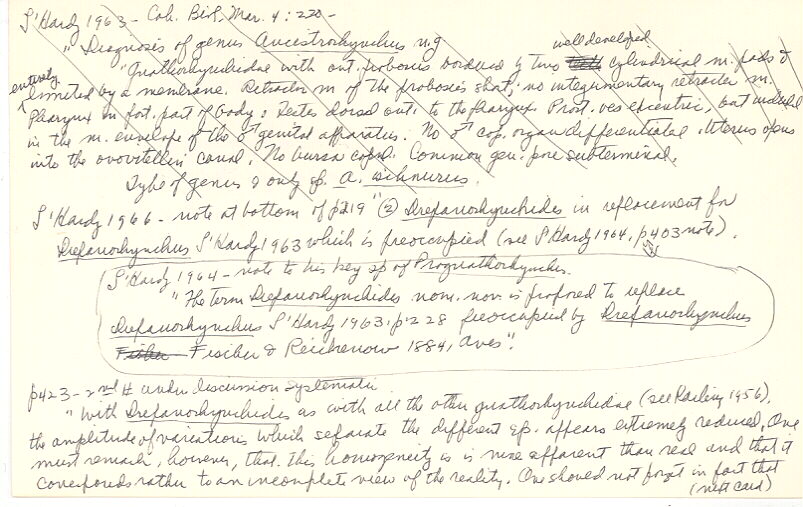 L'Hardy 1963 - Cah. Biol. Mar. 4: 220-
"Diagnosis of genus Ancestrorhynchus n.g
well developed
"Gnathorhynchidae with ant. proboscis bordered by two cylindrical m. pads &
entirely
limited by a membrane. Retractor m of the proboscis short, no integumentary retractor m.
Pharynx in post. part of body; Testes dorsal ant. to the pharynx. Prost. ves excentric, but included
in the m. envelope of the ♂ genital apparatus. No ♂ cop. organ differentiated. Uterus opens
into the ovovitellin canal. No bursa copul. Common gen. pore subterminal.
Type of genus & only sp. A.
L'Hardy 1966 - note at bottom of p219 "② Drepanorhynchides in replacement for
Drepanorhynchus L'Hardy 1963 which is preoccupied (see L'Hardy 1964, p403 note).
L'Hardy 1964 - note to his key sp of Prognathorhynchus.
"The term Drepanorhynchides nom. nov. is proposed to replace
Drepanorhynchus L'Hardy 1963, p228 preoccupied by Drepanorhynchus
Fischer & Reichenow 1884, Aves".
p423 - 2nd ¶ under discussion systematic
"With Drepanorhynchides as with all the other gnathorhynchidae (see Karling 1956),
the amplitude of variations which separate the different sp. appears extremely reduced. One
must remark, however, that this homogeneity is more apparent than real and that it
corresponds rather to an incomplete view of the reality. One should not forget in fact that
(next card)